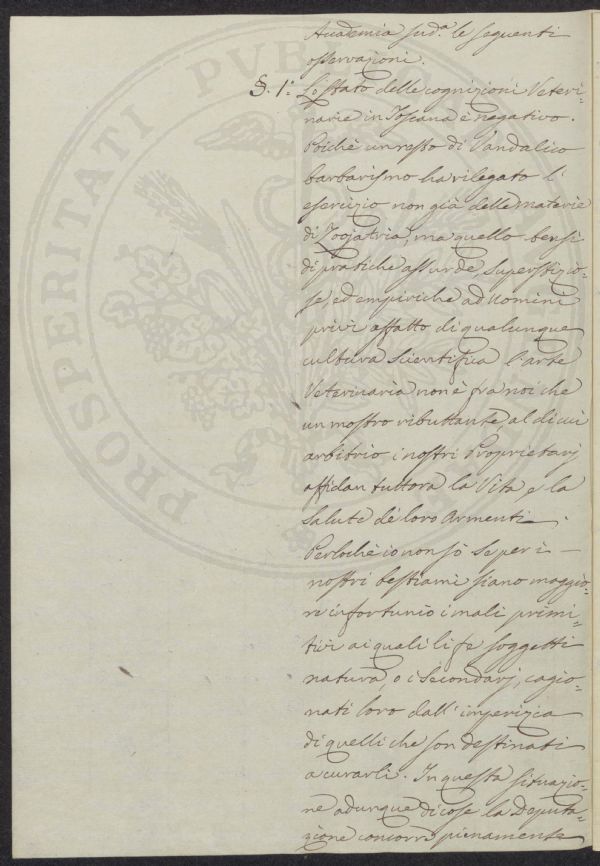 Academia sud.ª le seguenti
osservazioni.
§. 1.° Lo stato delle cognizioni Veteri-
narie in Toscana è negativo.
Poichè un resto di Vandalico
barbarismo ha rilegato l'
esercizio non già delle materie
di Zoojatria, ma quello bensì
di pratiche assurde, superstizio-
se, ed empiriche ad Uomini
privi affatto di qualunque
cultura scientifica l'arte
Veterinaria non è fra noi che
un mostro ributtante, al di cui
arbitrio i nostri Proprietarj
affidan tuttora la Vita e la
salute de loro Armenti.
Perlochè io non sò se per i
nostri bestiami siano maggio-
re infortunio i mali primi-
tivi ai quali li fe soggetti
natura, o i Secondarj, cagio-
nati loro dall'imperizia
di quelli che son destinati
a curarli. In questa situazio-
ne adunque di cose la Deputa-
zione concorre pienamente
PROSPERITATI